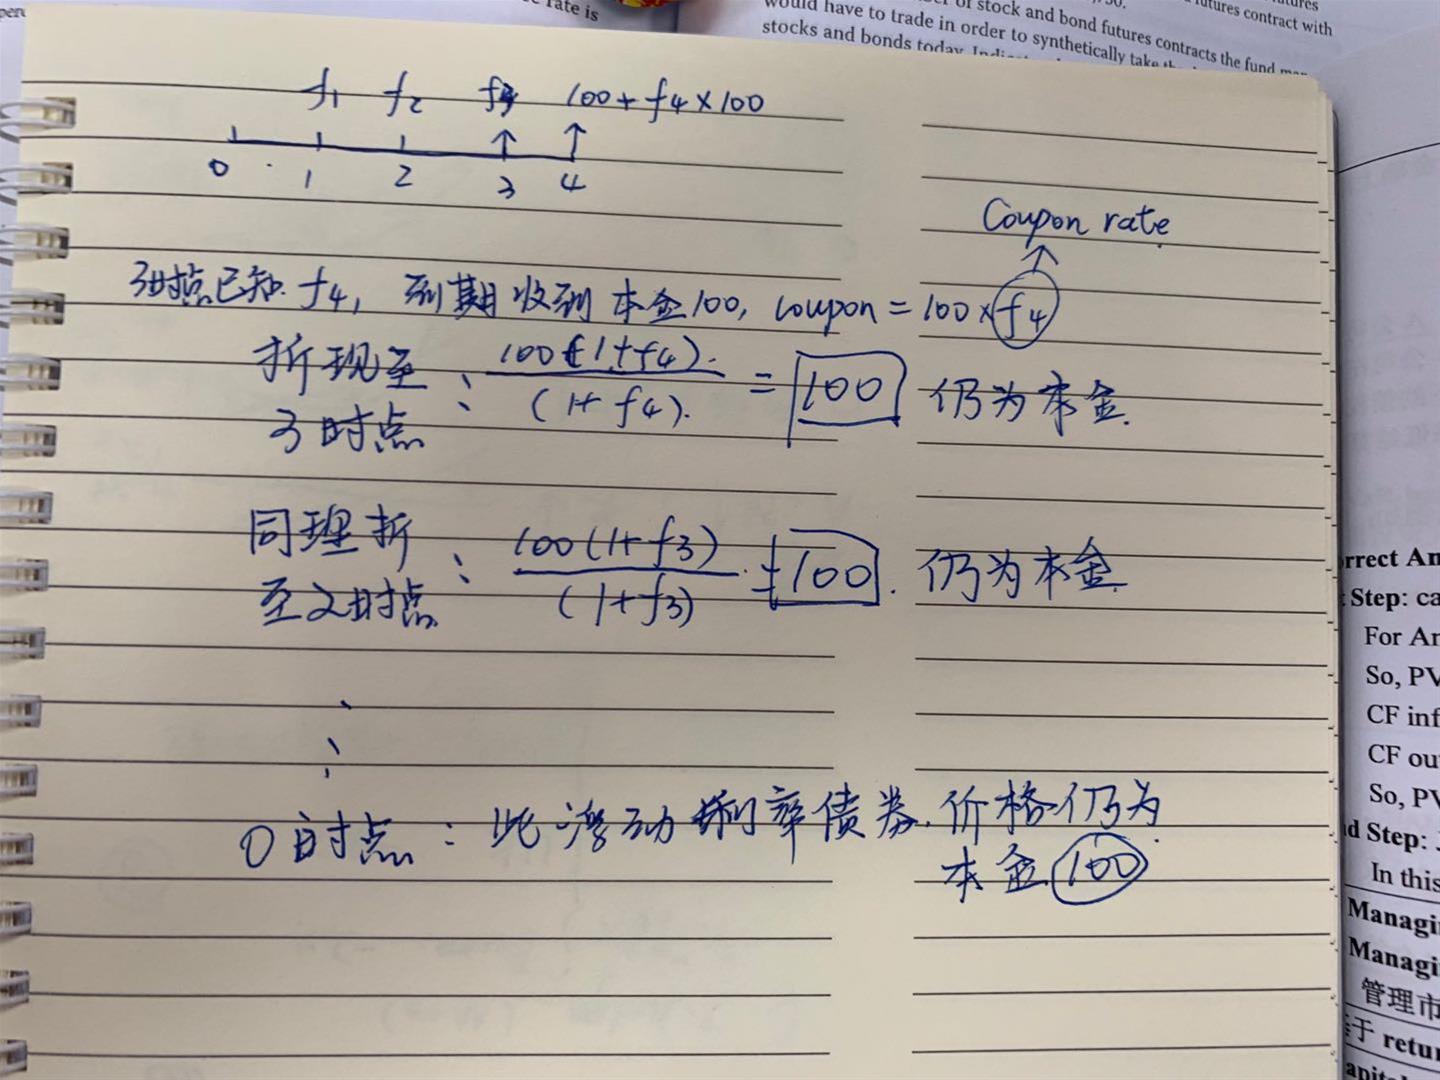 rate is
of stock and bond futures contracts the fund
would have to trade in order to synthetically take the
stocks and bonds today.
futures contract with
f1 f2 f3 100+f4×100
0 1 2 3 4
Coupon rate
3时点已知 f4, 到期收到本金100, coupon = 100×f4
折现至
3时点 : 100(1+f4) / (1+f4) = 100 仍为本金.
同理折
至2时点 : 100(1+f3) / (1+f3) = 100. 仍为本金
0时点: 此浮动利率债券价格仍为
本金100
rrect An
Step: ca
For An
So, PV
CF inf
CF ou
So, PV
d Step:
In this
Managi
Managi
管理市
于 retu